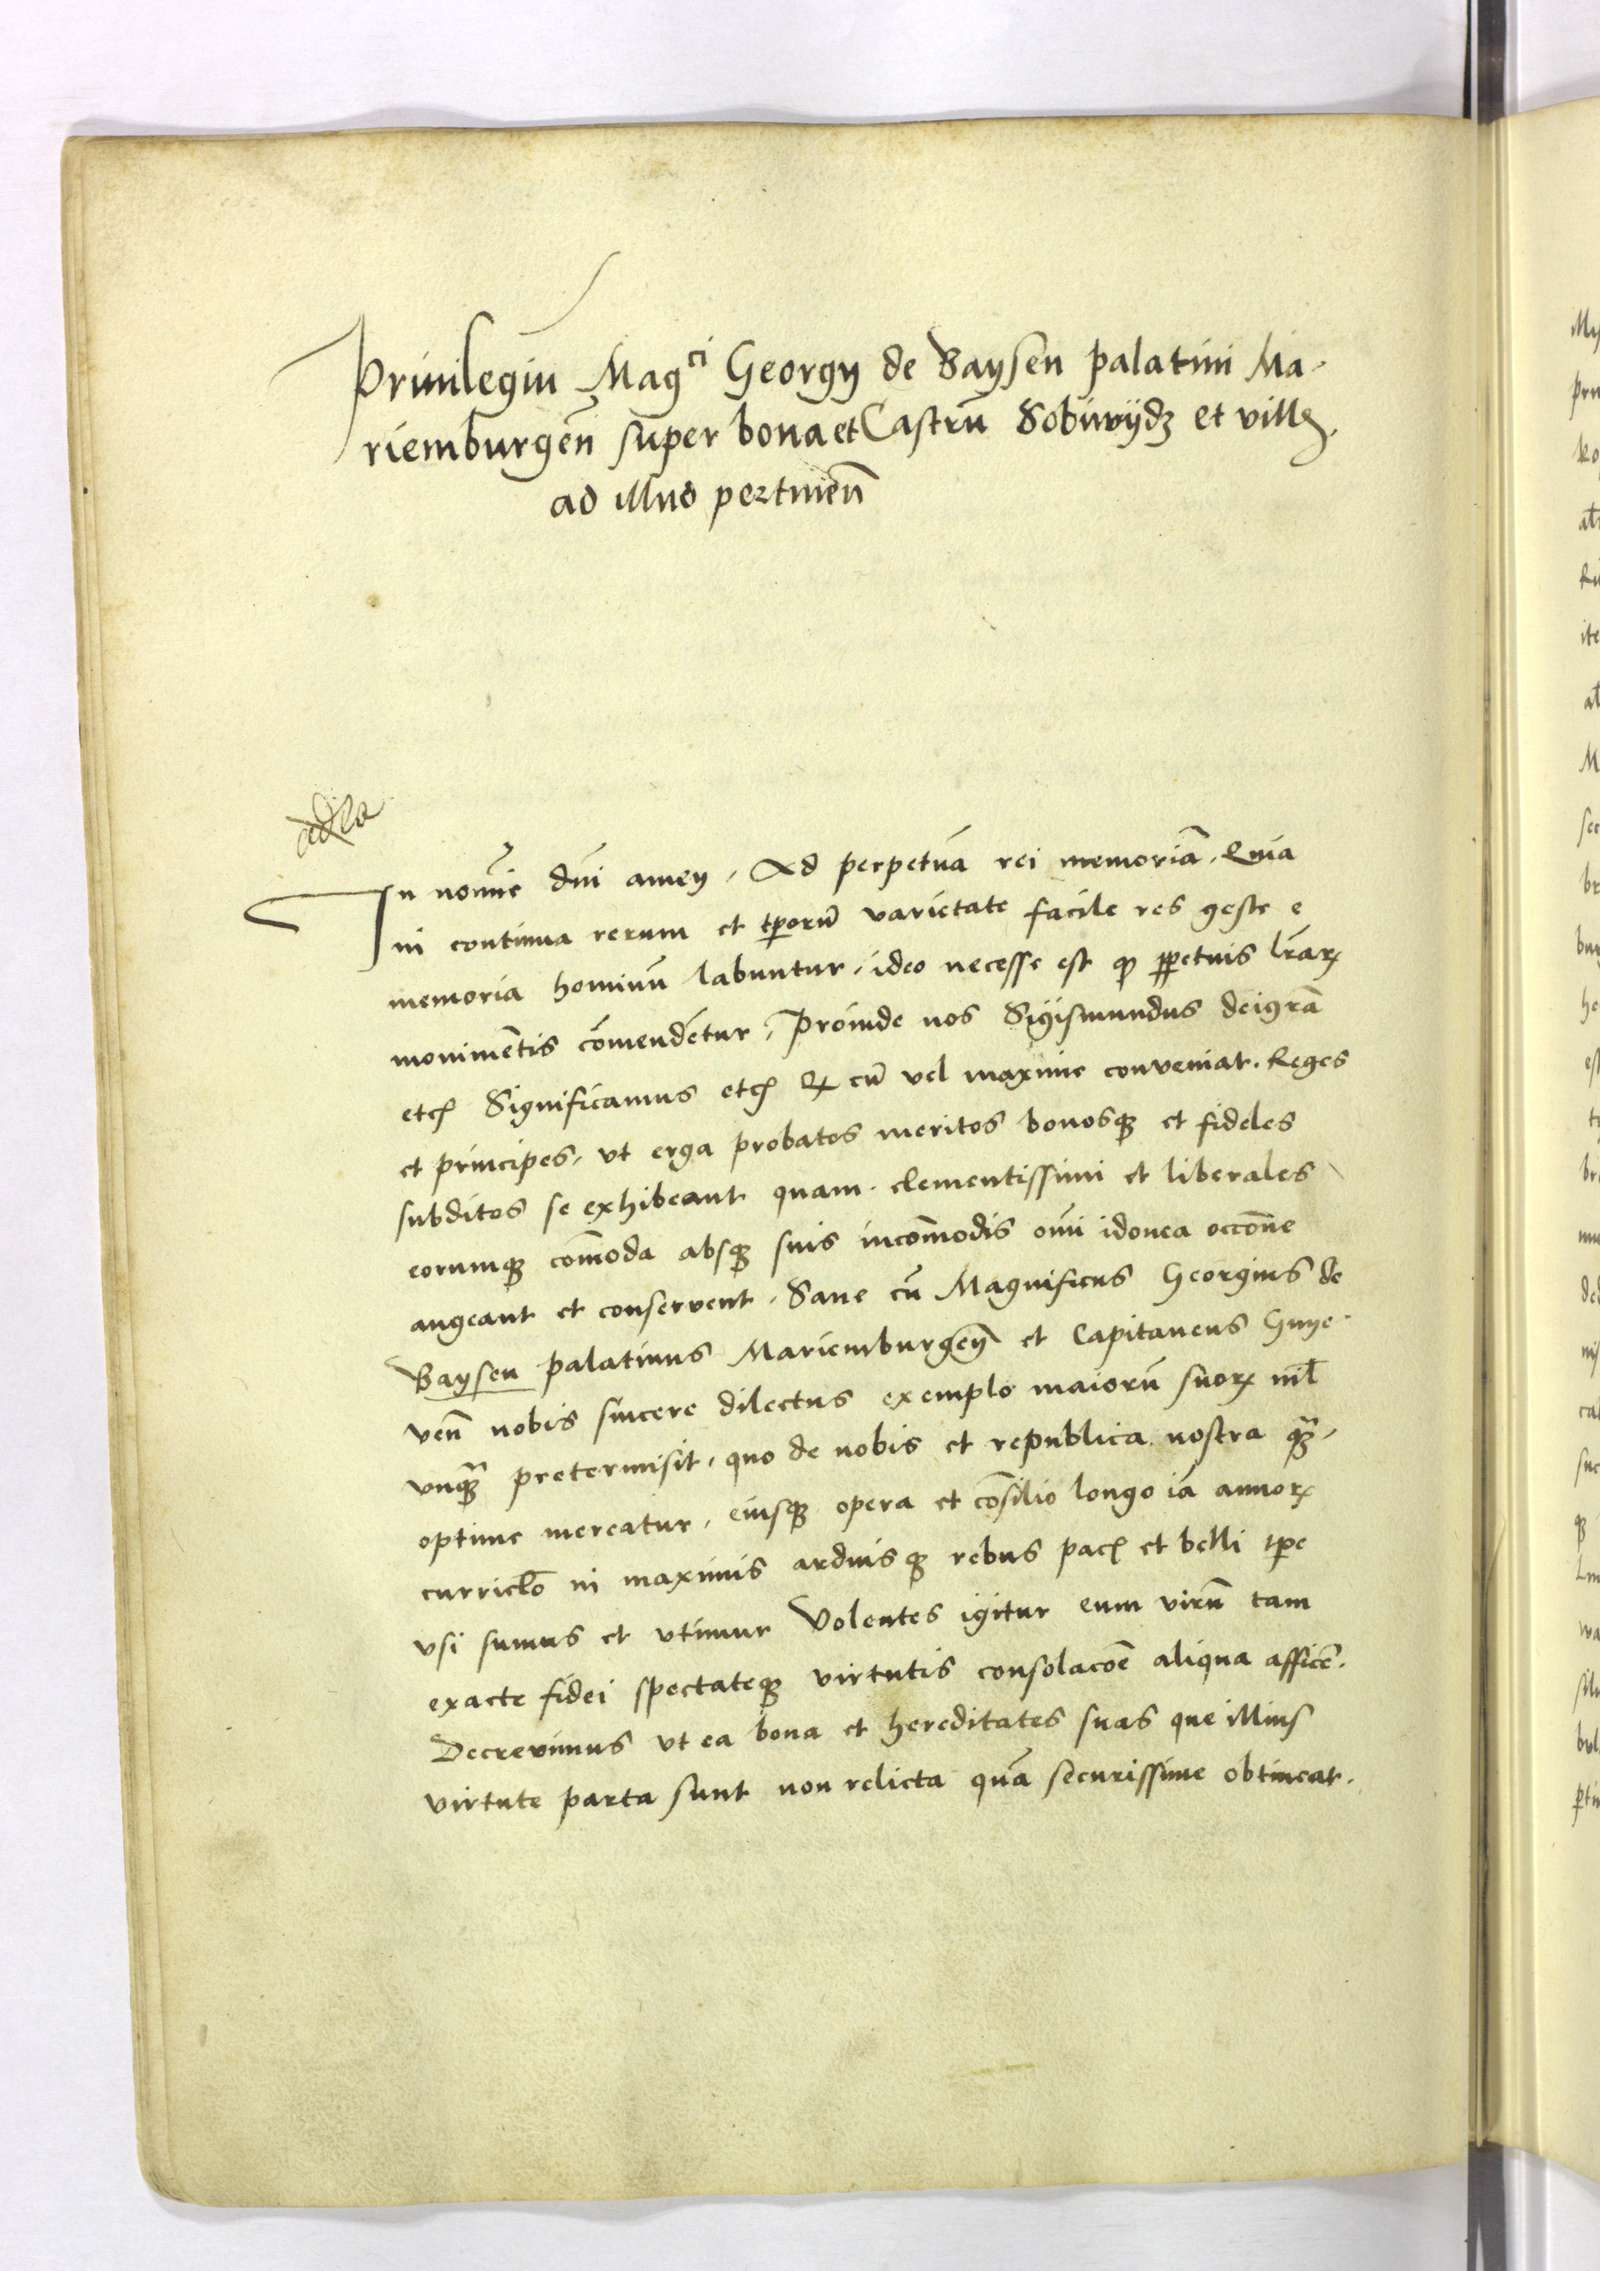 Privilegiu Magci Georgy de Baysen palatini Ma-
riemburgen̄ super bona et Castrū Sobuwÿdz et villꝫ
ad illud pertinen̄
In nomīe dn̄i amen, Ad perpetuā rei memoriā. Quia
in continua rerum et tp̄orū varietate facile res geste e
memoria hominū labuntur, ideo necesse est qꝫ ꝑpetuis lr̄arꝝ
monimentis cōmendētur, Proinde nos Sigismundus dei gr̄a
etcꝫ Significamus etcꝫ Qꝫ cū vel maxime conveniat. Reges
et principes, vt erga probatos meritos bonosqꝫ et fideles
subditos se exhibeant quam clementissimi et liberales
eorumqꝫ cōmoda absqꝫ suis incōmodis om̄i idonea occōne
augeant et conservent, Sane cū Magnificus Georgius de
Baysen palatinus Mariemburgen̄ et Capitaneus Gnye-
ven̄ nobis sincere dilectus exemplo maiorū suorꝝ nil̄
vnqꝫ̄ pretermisit, quo de nobis et republica nostra qꝫ̄,
optime mereatur, eiusqꝫ opera et cōsilio longo iā annorꝝ
curriclo̅ in maximis arduisqꝫ rebus pacꝫ et belli tp̄e
vsi sumus et vtimur Volentes igitur eum virū tam
exacte fidei spectateqꝫ virtutis consolacōe aliqua afficē.
Decrevimus vt ea bona et hereditates suas que illius
virtute parta sunt non relicta quā securissime obtineat.